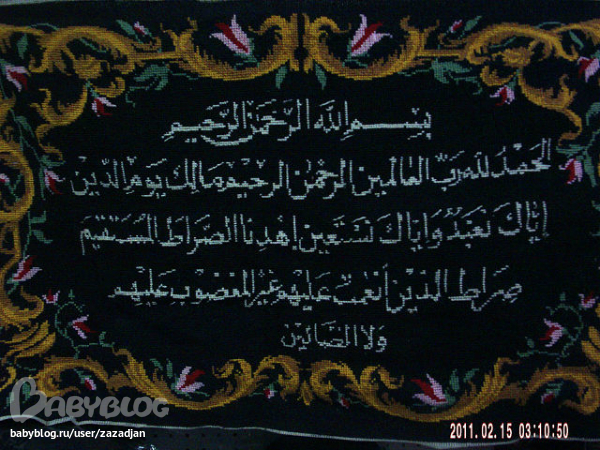 بسم الله الرحمن الرحيم
الحمد لله رب العالمين الرحمن الرحيم مالك يوم الدين
إياك نعبد وإياك نستعين إهدنا الصراط المستقيم
صراط الذين أنعمت عليهم غير المغضوب عليهم
ولا الضالين
BABYBLOG
babyblog.ru/user/zazadjan
2011.02.15 03:10:50